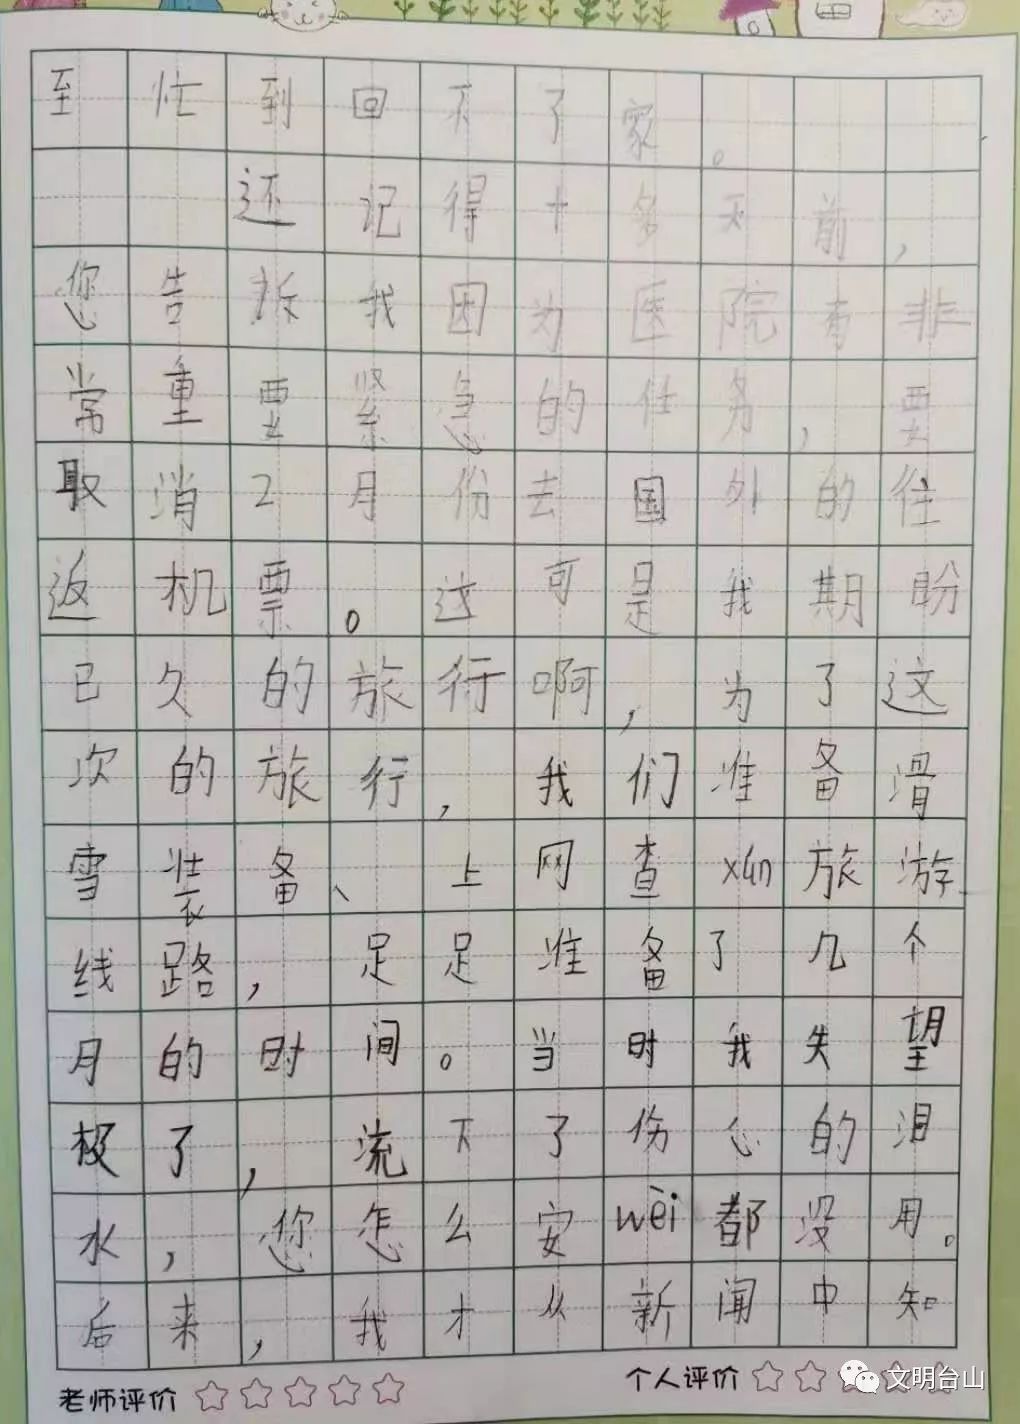 至忙到回不了家。
还记得十多天前,
您告诉我因为医院有非
常重要紧急的任务,要
取消2月份去国外的往
返机票。这可是我期盼
已久的旅行啊,为了这
次的旅行,我们准备滑
雪装备、上网查xún旅游
线路,足足准备了几个
月的时间。当时我失望
极了,流下了伤心的泪
水,您怎么安wèi都没用。
后来,我才从新闻中知
老师评价 个人评价
文明台山